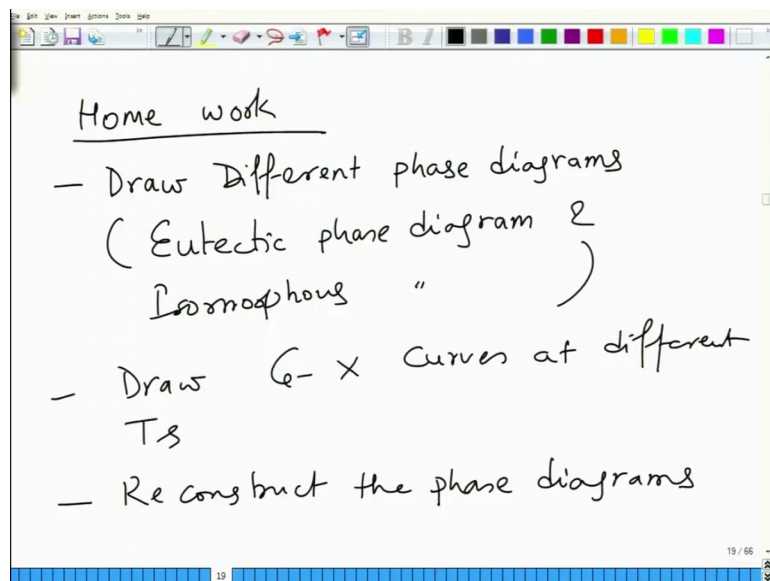 File Edit View Insert Actions Tools Help
B I
Home work
— Draw Different phase diagrams
( Eutectic phase diagram &
Isomorphous " )
— Draw G-X curves at different
Ts
— Reconstruct the phase diagrams
19 / 66
19